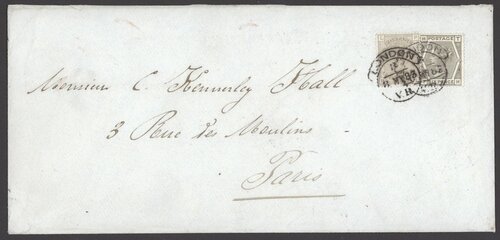 POSTAGE
LONDON
V.R.
Monsieur C. Kennerley Hall
3 Rue des Moulins
Paris